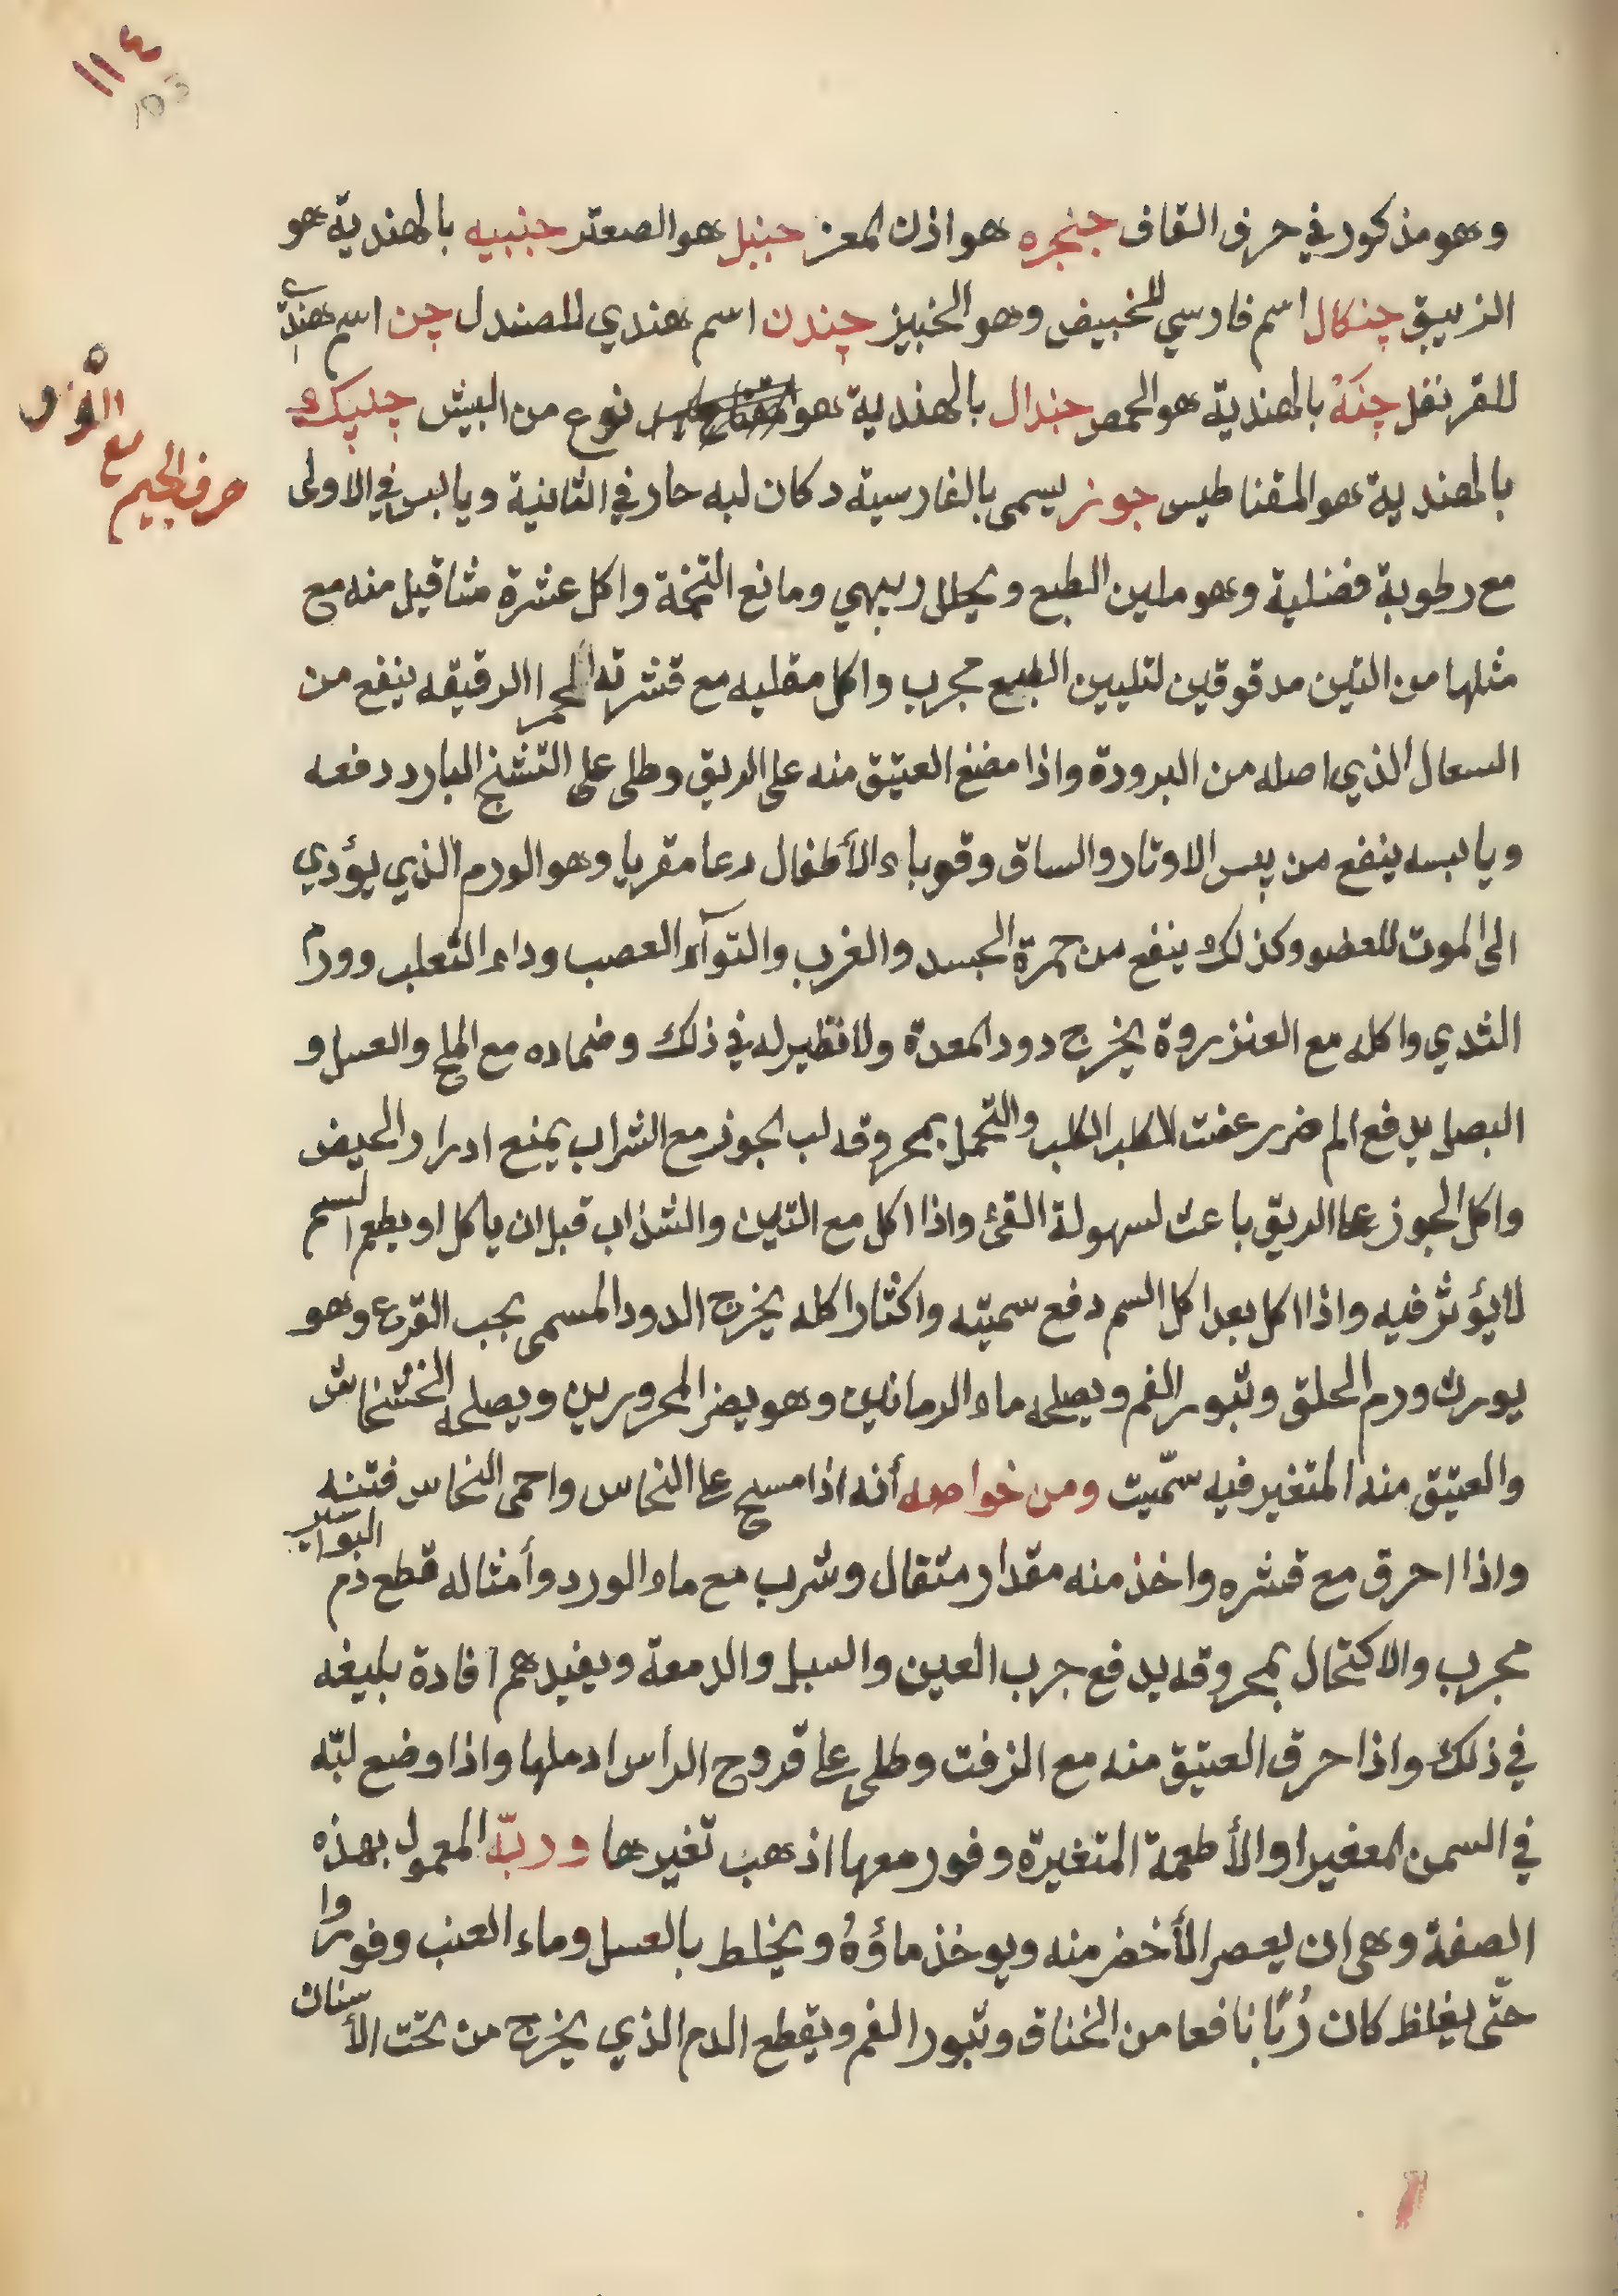 ١١٤
103
وهو مذكور في حرف القاف جنجره هو اذن المعز حنبل هو الصعتر جنبيه بالهندية هو
الزيبق چنكال اسم فارسي للخبيض وهو الخبيز چندن اسم هندي للصندل چن اسم هندي
للقرنفل چنَهْ بالهندية هو الحمص جندال بالهندية هو نوع من البيش چلپك
حرف الجيم مع الواو
بالهندية هو المقناطيس جوز يسمى بالفارسية دكان لبه حار في الثانية ويابس في الاولى
مع رطوبة فضلية وهو ملين الطبع ويحلل ويبهي ومانع التخمة واكل عشرة مثاقيل منه مع
مثلها من التين مدقوقين لتليين الطبع مجرب واكل مقليه مع قشرته الحمرا الرقيقه ينفع من
السعال الذي اصله من البرودة واذا مضغ العتيق منه على الريق وطلى على التشنج البارد دفعه
ويابسه ينفع من يبس الاوتار والساق وقوباء الأطفال وعامقريا وهو الورم الذي يؤدي
الى الموت للعضو وكذلك ينفع من حمرة الجسد والغرب والتوآء العصب وداء الثعلب وورم
الثدي واكله مع العنزروة يخرج دود المعدة ولا نظير له في ذلك وضماده مع الملح والعسل و
البصل يدفع الم ضرر عضت الكلب الكلب والتحمل بمحروقه لب الجوز مع الشراب يمنع ادرار الحيض
واكل الجوز على الريق باعث لسهولة القئ واذا اكل مع التين والشذاب قبل ان ياكل او يطعم السم
لا يؤثر فيه واذا اكل بعد اكل السم دفع سميته واكثار اكله يخرج الدود المسمى بحب القرع وهو
يورث ورم الحلق وثبور الفم ويصلحه ماء الرمانين وهو يضر المحرورين ويصلحه الخشخاش
والعتيق منه المتغير فيه سمّيت ومن خواصه أنه اذا مسح على النحاس واحمى النحاس فتنه
واذا احرق مع قشره واخذ منه مقدار مثقال وشرب مع ماء الورد وأمثاله قطع دم البواسير
مجرب والاكتحال بمحروقه يدفع جرب العين والسبل والدمعة ويفيدهم افادة بليغه
في ذلك واذا حرق العتيق منه مع الزفت وطلى على قروح الرأس ادملها واذا وضع لبّه
في السمن المغير او الأطعمة المتغيرة وفور معها اذهب تغيرها وربّ المعمول بهذه
الصفة وهى ان يعصر الأخضر منه ويوخذ ماؤهُ ويخلط بالعسل وماء العنب وفوروا
حتّى يغلظ كان رُبًا نافعا من الخناق وثبور الفم ويقطع الدم الذي يخرج من تحت الأسنان